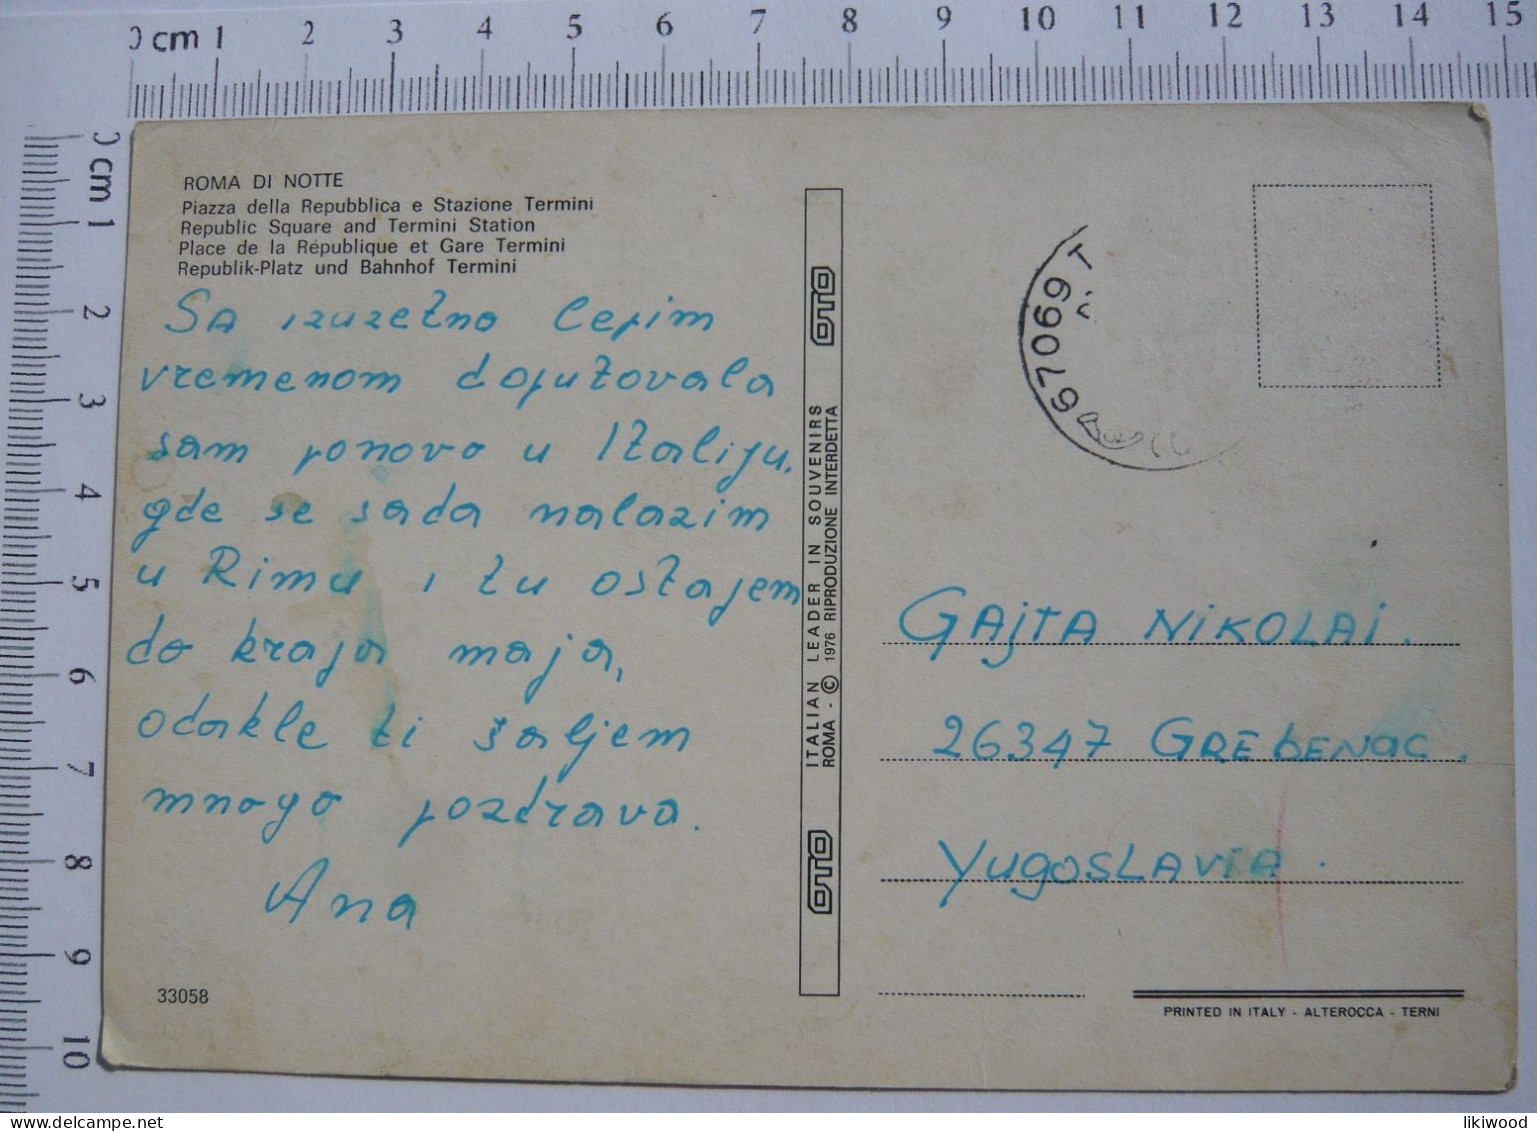 0 cm 1 2 3 4 5 6 7 8 9 10 11 12 13 14 15
0 cm 1 2 3 4 5 6 7 8 9 10
ROMA DI NOTTE
Piazza della Repubblica e Stazione Termini
Republic Square and Termini Station
Place de la République et Gare Termini
Republik-Platz und Bahnhof Termini
Sa izuzetno lepim
vremenom doputovala
sam ponovo u Italiju,
gde se sada nalazim
u Rimu i tu ostajem
do kraja maja,
odakle ti šaljem
mnogo pozdrava.
Ana
33058
OTO ITALIAN LEADER IN SOUVENIRS OTO
ROMA - © 1976 RIPRODUZIONE INTERDETTA
67069 T
GAJTA NIKOLAI.
26347 GREBENAC.
YUGOSLAVIA.
PRINTED IN ITALY - ALTEROCCA - TERNI
likiwood